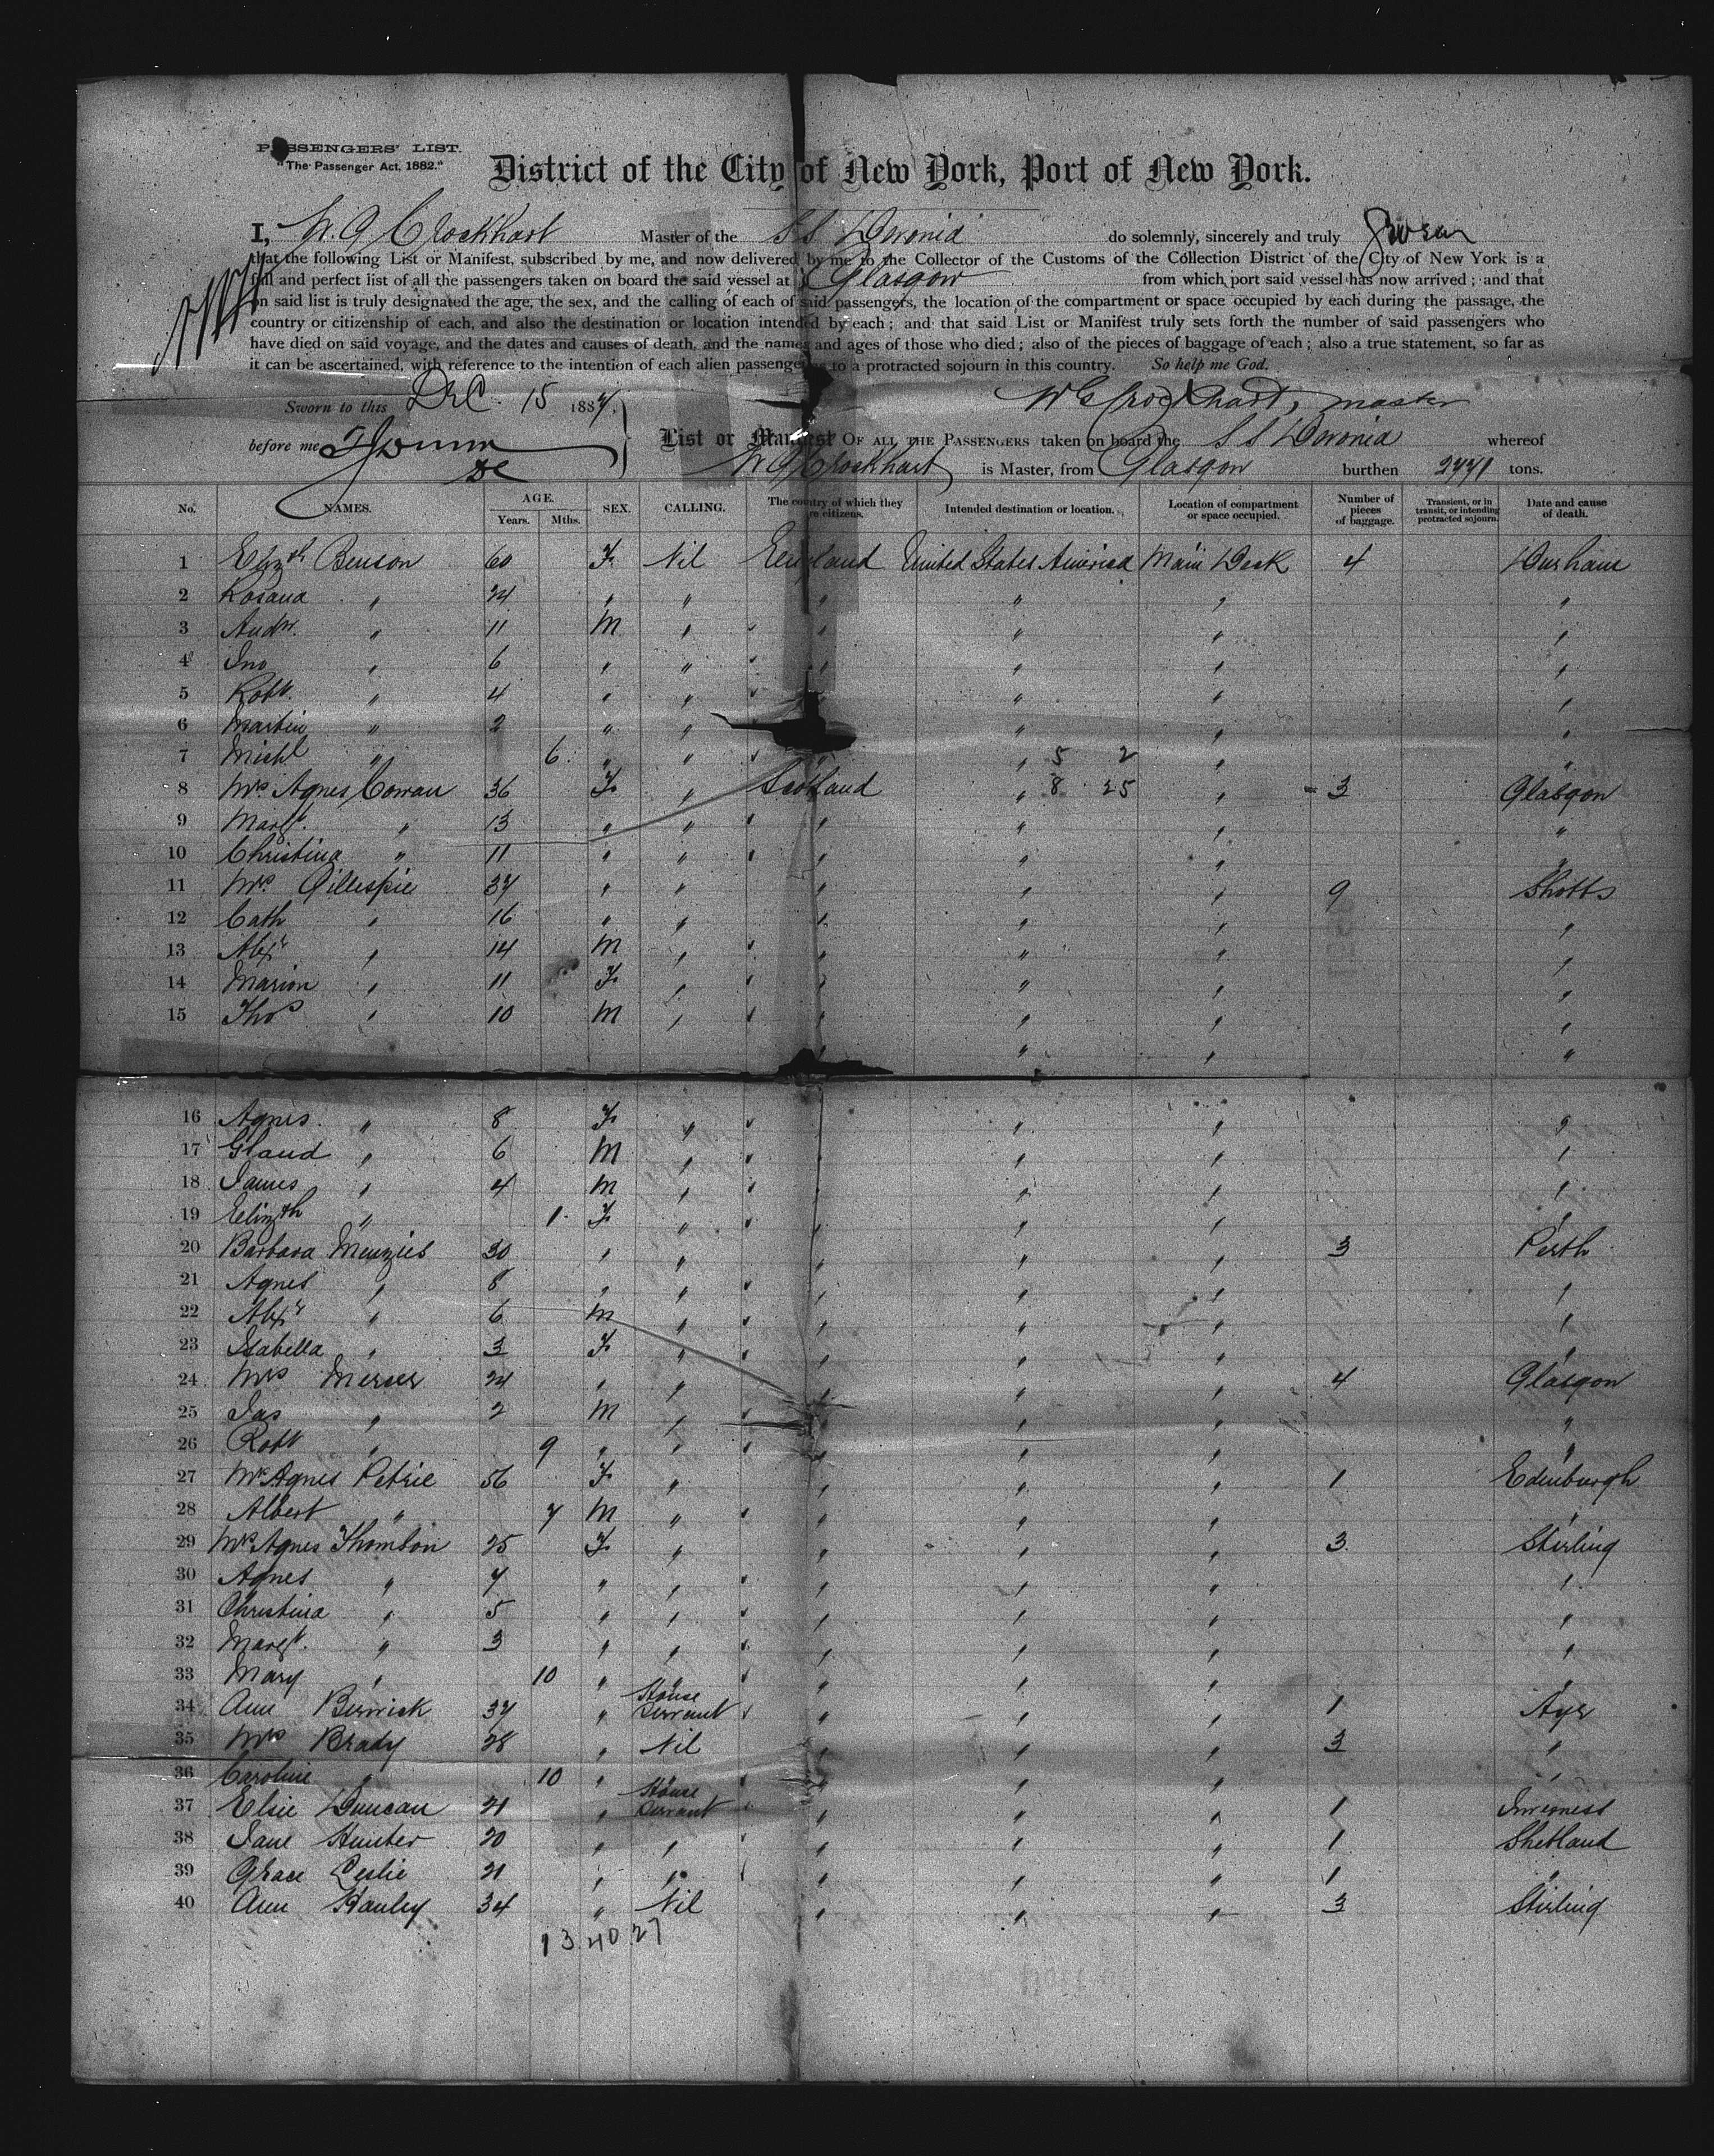 PASSENGERS' LIST.
"The Passenger Act, 1882."
District of the City of New York, Port of New York.
I, W. G Crockhart Master of the S S Devonia do solemnly, sincerely and truly Swear
that the following List or Manifest, subscribed by me, and now delivered by me to the Collector of the Customs of the Collection District of the City of New York is a
full and perfect list of all the passengers taken on board the said vessel at Glasgow from which port said vessel has now arrived; and that
on said list is truly designated the age, the sex, and the calling of each of said passengers, the location of the compartment or space occupied by each during the passage, the
country or citizenship of each, and also the destination or location intended by each; and that said List or Manifest truly sets forth the number of said passengers who
have died on said voyage, and the dates and causes of death, and the names and ages of those who died; also of the pieces of baggage of each; also a true statement, so far as
it can be ascertained, with reference to the intention of each alien passenger as to a protracted sojourn in this country. So help me God.
Sworn to this Dec. 15 1887. W G Crockhart, master
before me
List or Manifest OF ALL THE PASSENGERS taken on board the S S Devonia whereof
W G Crockhart is Master, from Glasgow burthen 2771 tons.
No. NAMES. AGE. Years. Mths. SEX. CALLING. The country of which they are citizens. Intended destination or location. Location of compartment or space occupied. Number of pieces of baggage. Transient, or in transit, or intending protracted sojourn. Date and cause of death.
1 Elizth Benson 60 F Nil England United States America Main Deck 4 Durham
2 Rosana " 24 " " " " " "
3 Andw. " 11 M " " " " "
4 Jno " 6 " " " " " "
5 Robt. " 4 " " " " "
6 Martin " 2 " " " " "
7 Michl " 6 " " " " 5 2 " "
8 Mrs Agnes Cowan 36 F " Scotland " 8 25 " 3 Glasgow
9 Margt. " 13 " " " " " "
10 Christina " 11 " " " " " "
11 Mrs Gillespie 37 " " " " " 9 Shotts
12 Cath " 16 " " " " " "
13 Alexr " 14 M " " " " "
14 Marion " 11 F " " " " "
15 Thos " 10 M " " " " "
" " " "
16 Agnes " 8 F " " " " "
17 Gland " 6 M " " " " "
18 James " 4 M " " " " "
19 Elizth " 1 F " " " " "
20 Barbara Menzies 30 " " " " " 3 Perth
21 Agnes " 8 " " " " " "
22 Alexr " 6 M " " " " "
23 Isabella " 3 F " " " " "
24 Mrs Mercer 24 " " " " " 4 Glasgow
25 Jas " 2 M " " " " "
26 Robt " 9 " " " " " "
27 Mrs Agnes Petrie 56 F " " " " 1 Edinburgh
28 Albert " 7 M " " " " "
29 Mrs Agnes Thomson 25 F " " " " 3 Stirling
30 Agnes " 7 " " " " " "
31 Christina " 5 " " " " " "
32 Margt. " 3 " " " " " "
33 Mary " 10 " " " " " "
34 Ann Berwick 37 " House Servant " " " 1 Ayr
35 Mrs Brady 28 " Nil " " " 3 "
36 Caroline " 10 " " " " " "
37 Elsie Duncan 21 " House Servant " " " 1 Inverness
38 Jane Hunter 20 " " " " " 1 Shetland
39 Grace Leslie 21 " " " " " 1 "
40 Ann Hanley 34 " Nil " " " 3 Stirling
13 40 27